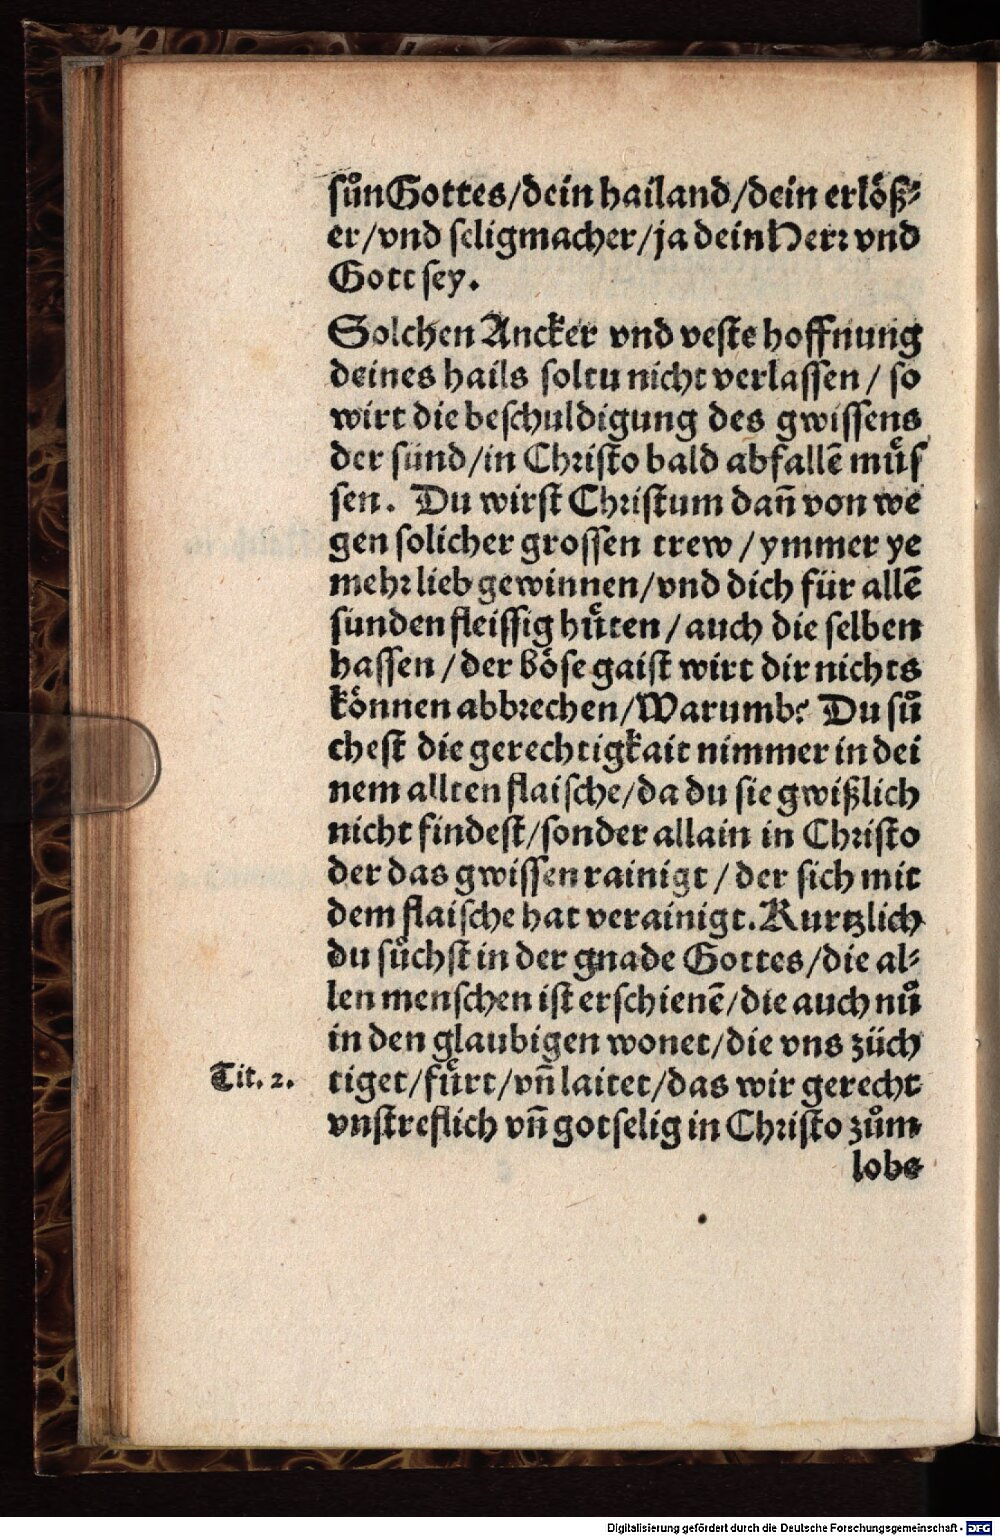 sůn Gottes/dein hailand/dein erlöß⸗
er/vnd seligmacher/ja dein Herꝛ vnd
Gott sey.
Solchen Ancker vnd veste hoffnung
deines hails soltu nicht verlassen/ so
wirt die beschuldigung des gwissens
der sünd/in Chꝛisto bald abfallē můͤs
sen. Du wirst Chꝛistum dañ von we
gen solicher grossen trew/ymmer ye
mehꝛ lieb gewinnen/vnd dich für allē
sünden fleissig hůͤten/auch die selben
hassen/der böse gaist wirt dir nichts
können abbꝛechen/Warumb? Du sů
chest die gerechtigkait nimmer in dei
nem allten flaische/da du sie gwißlich
nicht findest/sonder allain in Chꝛisto
der das gwissen rainigt/der sich mit
dem flaische hat verainigt. Kurtzlich
du sůchst in der gnade Gottes/die al⸗
len menschen ist erschienē/die auch nů
in den glaubigen wonet/die vns züch
Tit. 2. tiget/fůͤrt/vñ laitet/das wir gerecht
vnstreflich vñ gotselig in Chꝛisto zům
lobe
Digitalisierung gefördert durch die Deutsche Forschungsgemeinschaft - DFG